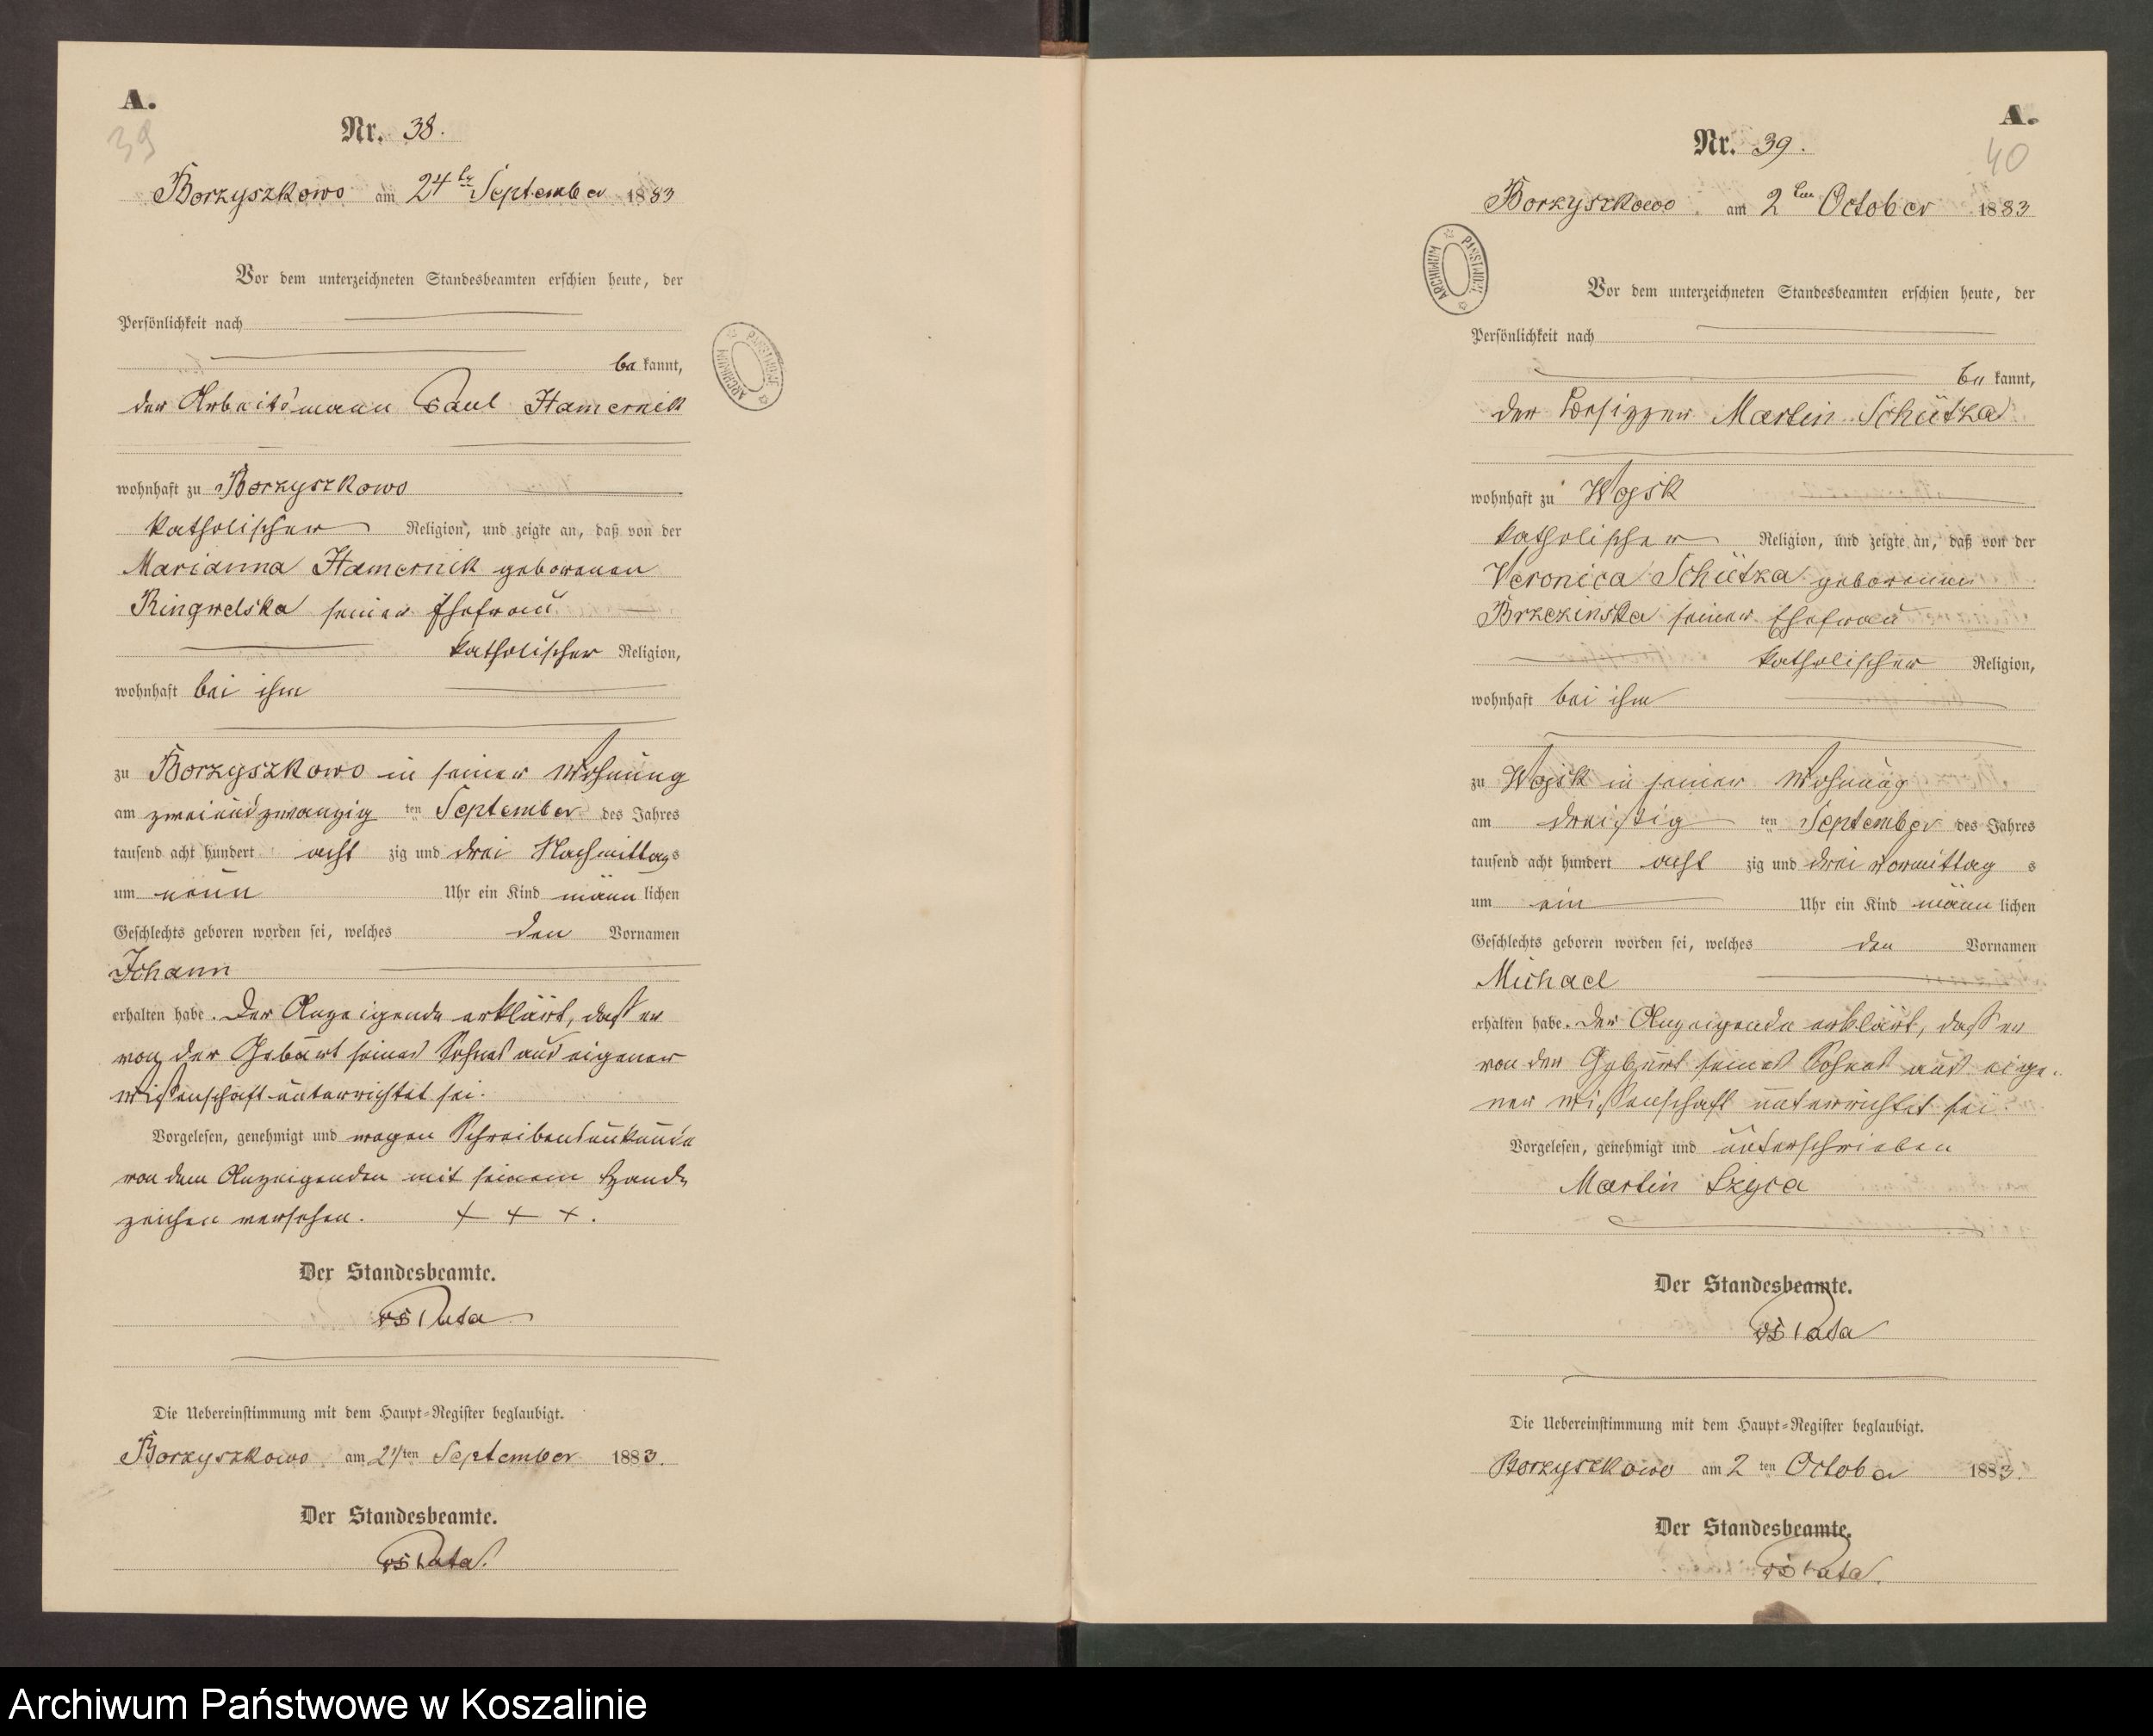 A.
39
Nr. 38.
Borzyszkowo am 24ten September 1883
Vor dem unterzeichneten Standesbeamten erschien heute, der
Persönlichkeit nach
bekannt,
der Arbeitsmann Paul Hamernik
wohnhaft zu Borzyszkowo
katholischer Religion, und zeigte an, daß von der
Marianna Hamernik geborenen
Ringwelska seiner Ehefrau
katholischer Religion,
wohnhaft bei ihm
zu Borzyszkowo in seiner Wohnung
am zweiundzwanzig ten September des Jahres
tausend acht hundert acht zig und drei Nachmittags
um neun Uhr ein Kind männlichen
Geschlechts geboren worden sei, welches den Vornamen
Johann
erhalten habe. Der Anzeigende erklärt, daß er
von der Geburt seines Sohnes aus eigener
Wißenschaft unterrichtet sei.
Vorgelesen, genehmigt und wegen Schreibensunkunde
von dem Anzeigenden mit seinem Hand-
zeichen versehen. + + +.
Der Standesbeamte.
Die Uebereinstimmung mit dem Haupt-Register beglaubigt.
Borzyszkowo am 24ten September 1883.
Der Standesbeamte.
ARCHIWUM PAŃSTWOWE
A.
40
Nr. 39.
Borzyszkowo am 2ten October 1883
ARCHIWUM PAŃSTWOWE
Vor dem unterzeichneten Standesbeamten erschien heute, der
Persönlichkeit nach
bekannt,
der Besitzer Martin Schütza
wohnhaft zu Wojsk
katholischer Religion, und zeigte an, daß von der
Veronica Schütza geborenen
Brzezinska seiner Ehefrau
katholischer Religion,
wohnhaft bei ihm
zu Wojsk in seiner Wohnung
am dreißig ten September des Jahres
tausend acht hundert acht zig und drei Vormittag s
um ein Uhr ein Kind männlichen
Geschlechts geboren worden sei, welches den Vornamen
Michael
erhalten habe. Der Anzeigende erklärt, daß er
von der Geburt seines Sohnes aus eige-
ner Wißenschaft unterrichtet sei.
Vorgelesen, genehmigt und unterschrieben
Martin Szyca
Der Standesbeamte.
Die Uebereinstimmung mit dem Haupt-Register beglaubigt.
Borzyszkowo am 2 ten October 1883.
Der Standesbeamte.
Archiwum Państwowe w Koszalinie